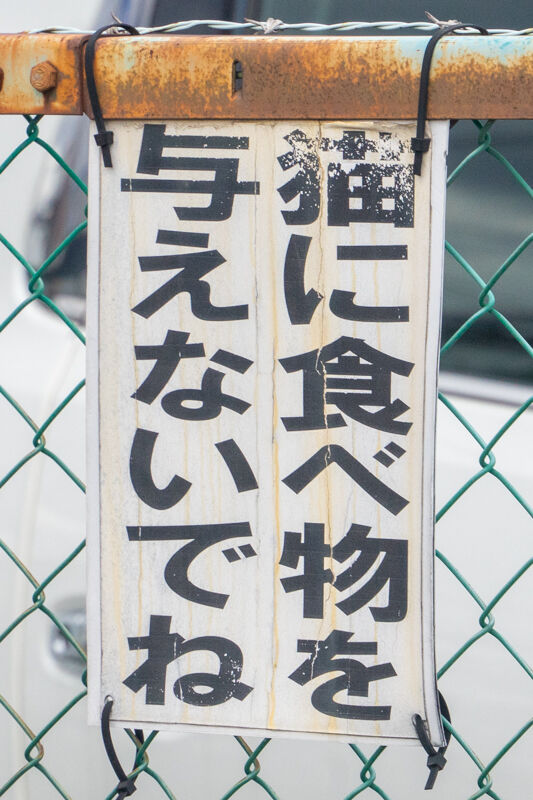 猫に食べ物を
与えないでね